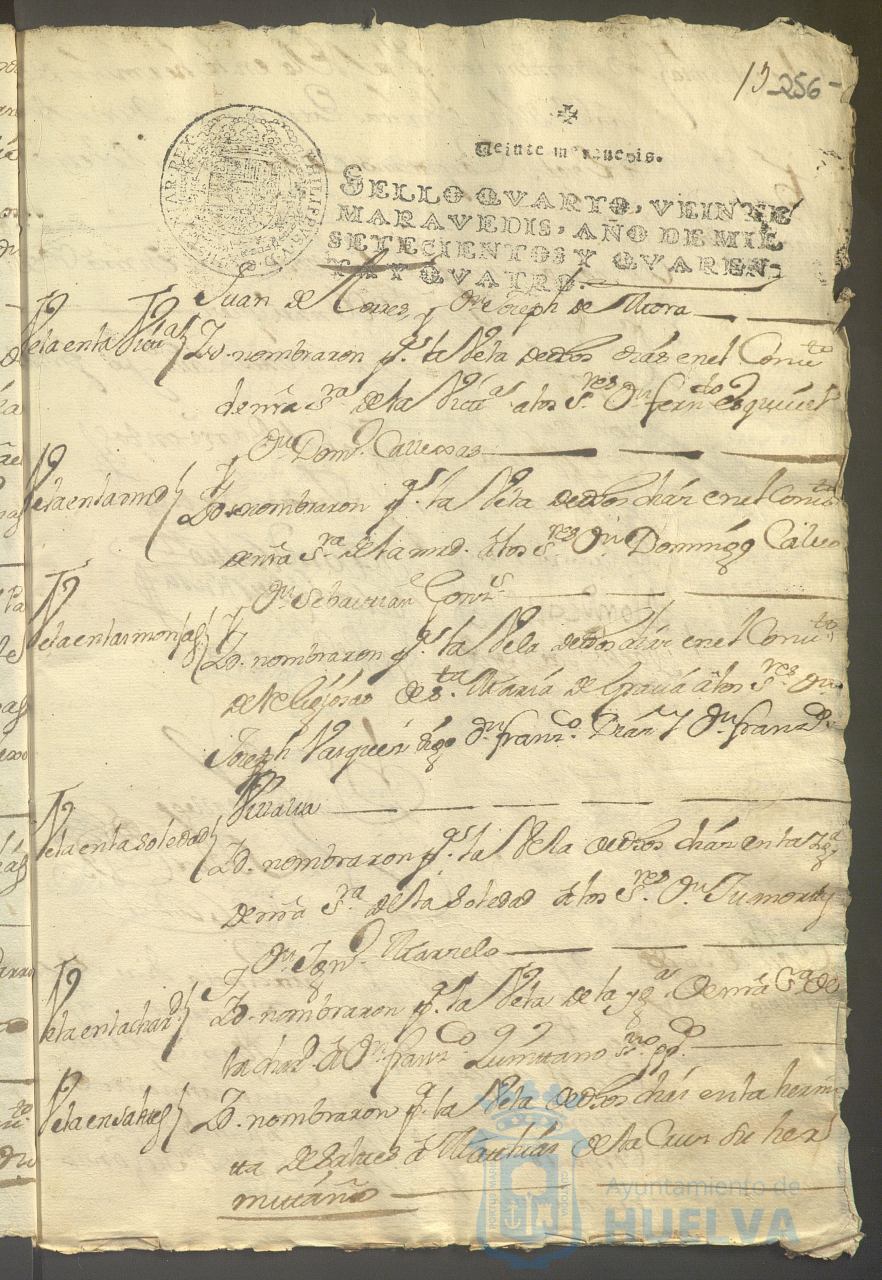 13 256
Veinte maravedis.
SELLO QVARTO, VEINTE
MARAVEDIS, AÑO DE MIL
SETECIENTOS Y QVAREN-
TA Y QVATRO.
PHILIPPVS V D G
Juan de Torres, y Dn. Joseph de Mora
Vela en la Victa
Yd. nombraron pa. la Vela de dhos dias en el Convto
de nra Sra de la Victa a los Sres Dn ferndo Esquivel
y Dn Domo. Calvo
Vela en la mrd
Yd. nombraron pa. la Vela de dhos dias en el Convto
de nra Sra de la mrd. a los Sres Dn Domingo Calvo
y Dn Sebastian Gonzs
Vela en las monjas
Yd. nombraron pa. la Vela de dhos dias en el Convto
de Relijiosas de Sta. Maria de Gracia a los Sres. Dn
Joseph Dn franco. Diaz y Dn franco
Vela en la Soledad
Yd. nombraron pa. la Vela de dhos dias en la
de nra Sra de la Soledad a los Sres. Dn.
y Dn Igno.
Vela en la chard
Yd. nombraron pa. la Vela de la de nra Sra de
la chard. a Dn franco
Yd. nombraron pa. la Vela de dhos dias en la hermi
ta de a Mathias de la Cruz su her
mittaño
Ayuntamiento de
HUELVA